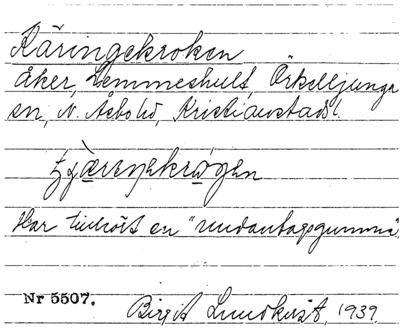 Käringekroken
åker, Lemmeshult, Örkelljunga
sn, N. Åsbo hd, Kristianstads l.
Har tillhört en "undantagsgumma"
Nr 5507.
Birgit Lundkvist, 1939